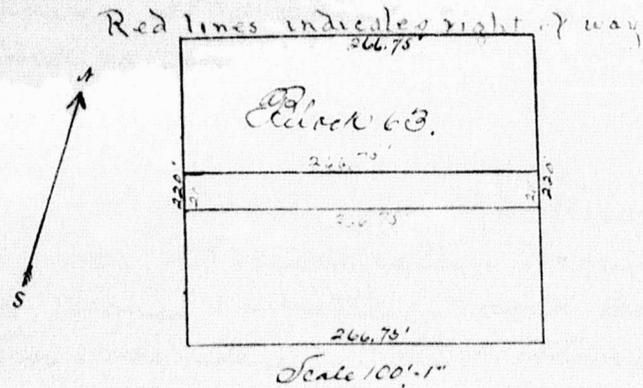 Red lines indicates right of way
266.75'
N
Block 63.
266.75'
220'
220'
266.75'
S
266.75'
Scale 100'-1"